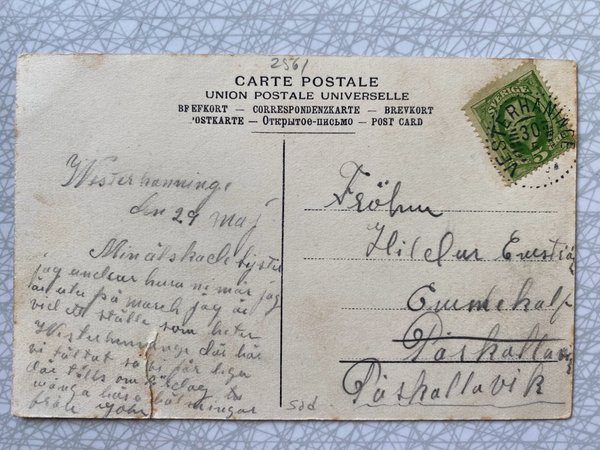 2561
CARTE POSTALE
UNION POSTALE UNIVERSELLE
BREFKORT — CORRESPONDENZKARTE — BREVKORT
POSTKARTE — Открытое-письмо — POST CARD
SVERIGE
5
VESTERHANINGE
30
Westerhanninge
den 29 maj
Min älskade syster
jag undrar hura ni mår jag
är ute på march jag är
vid ett ställe som heter
Westerhanninge där här
vi tältat så vi får liga
där tills om
många kära hälsningar
från
Fröhn
Hildur
Emmekalf
Påskallavik
Påskallavik
Söd